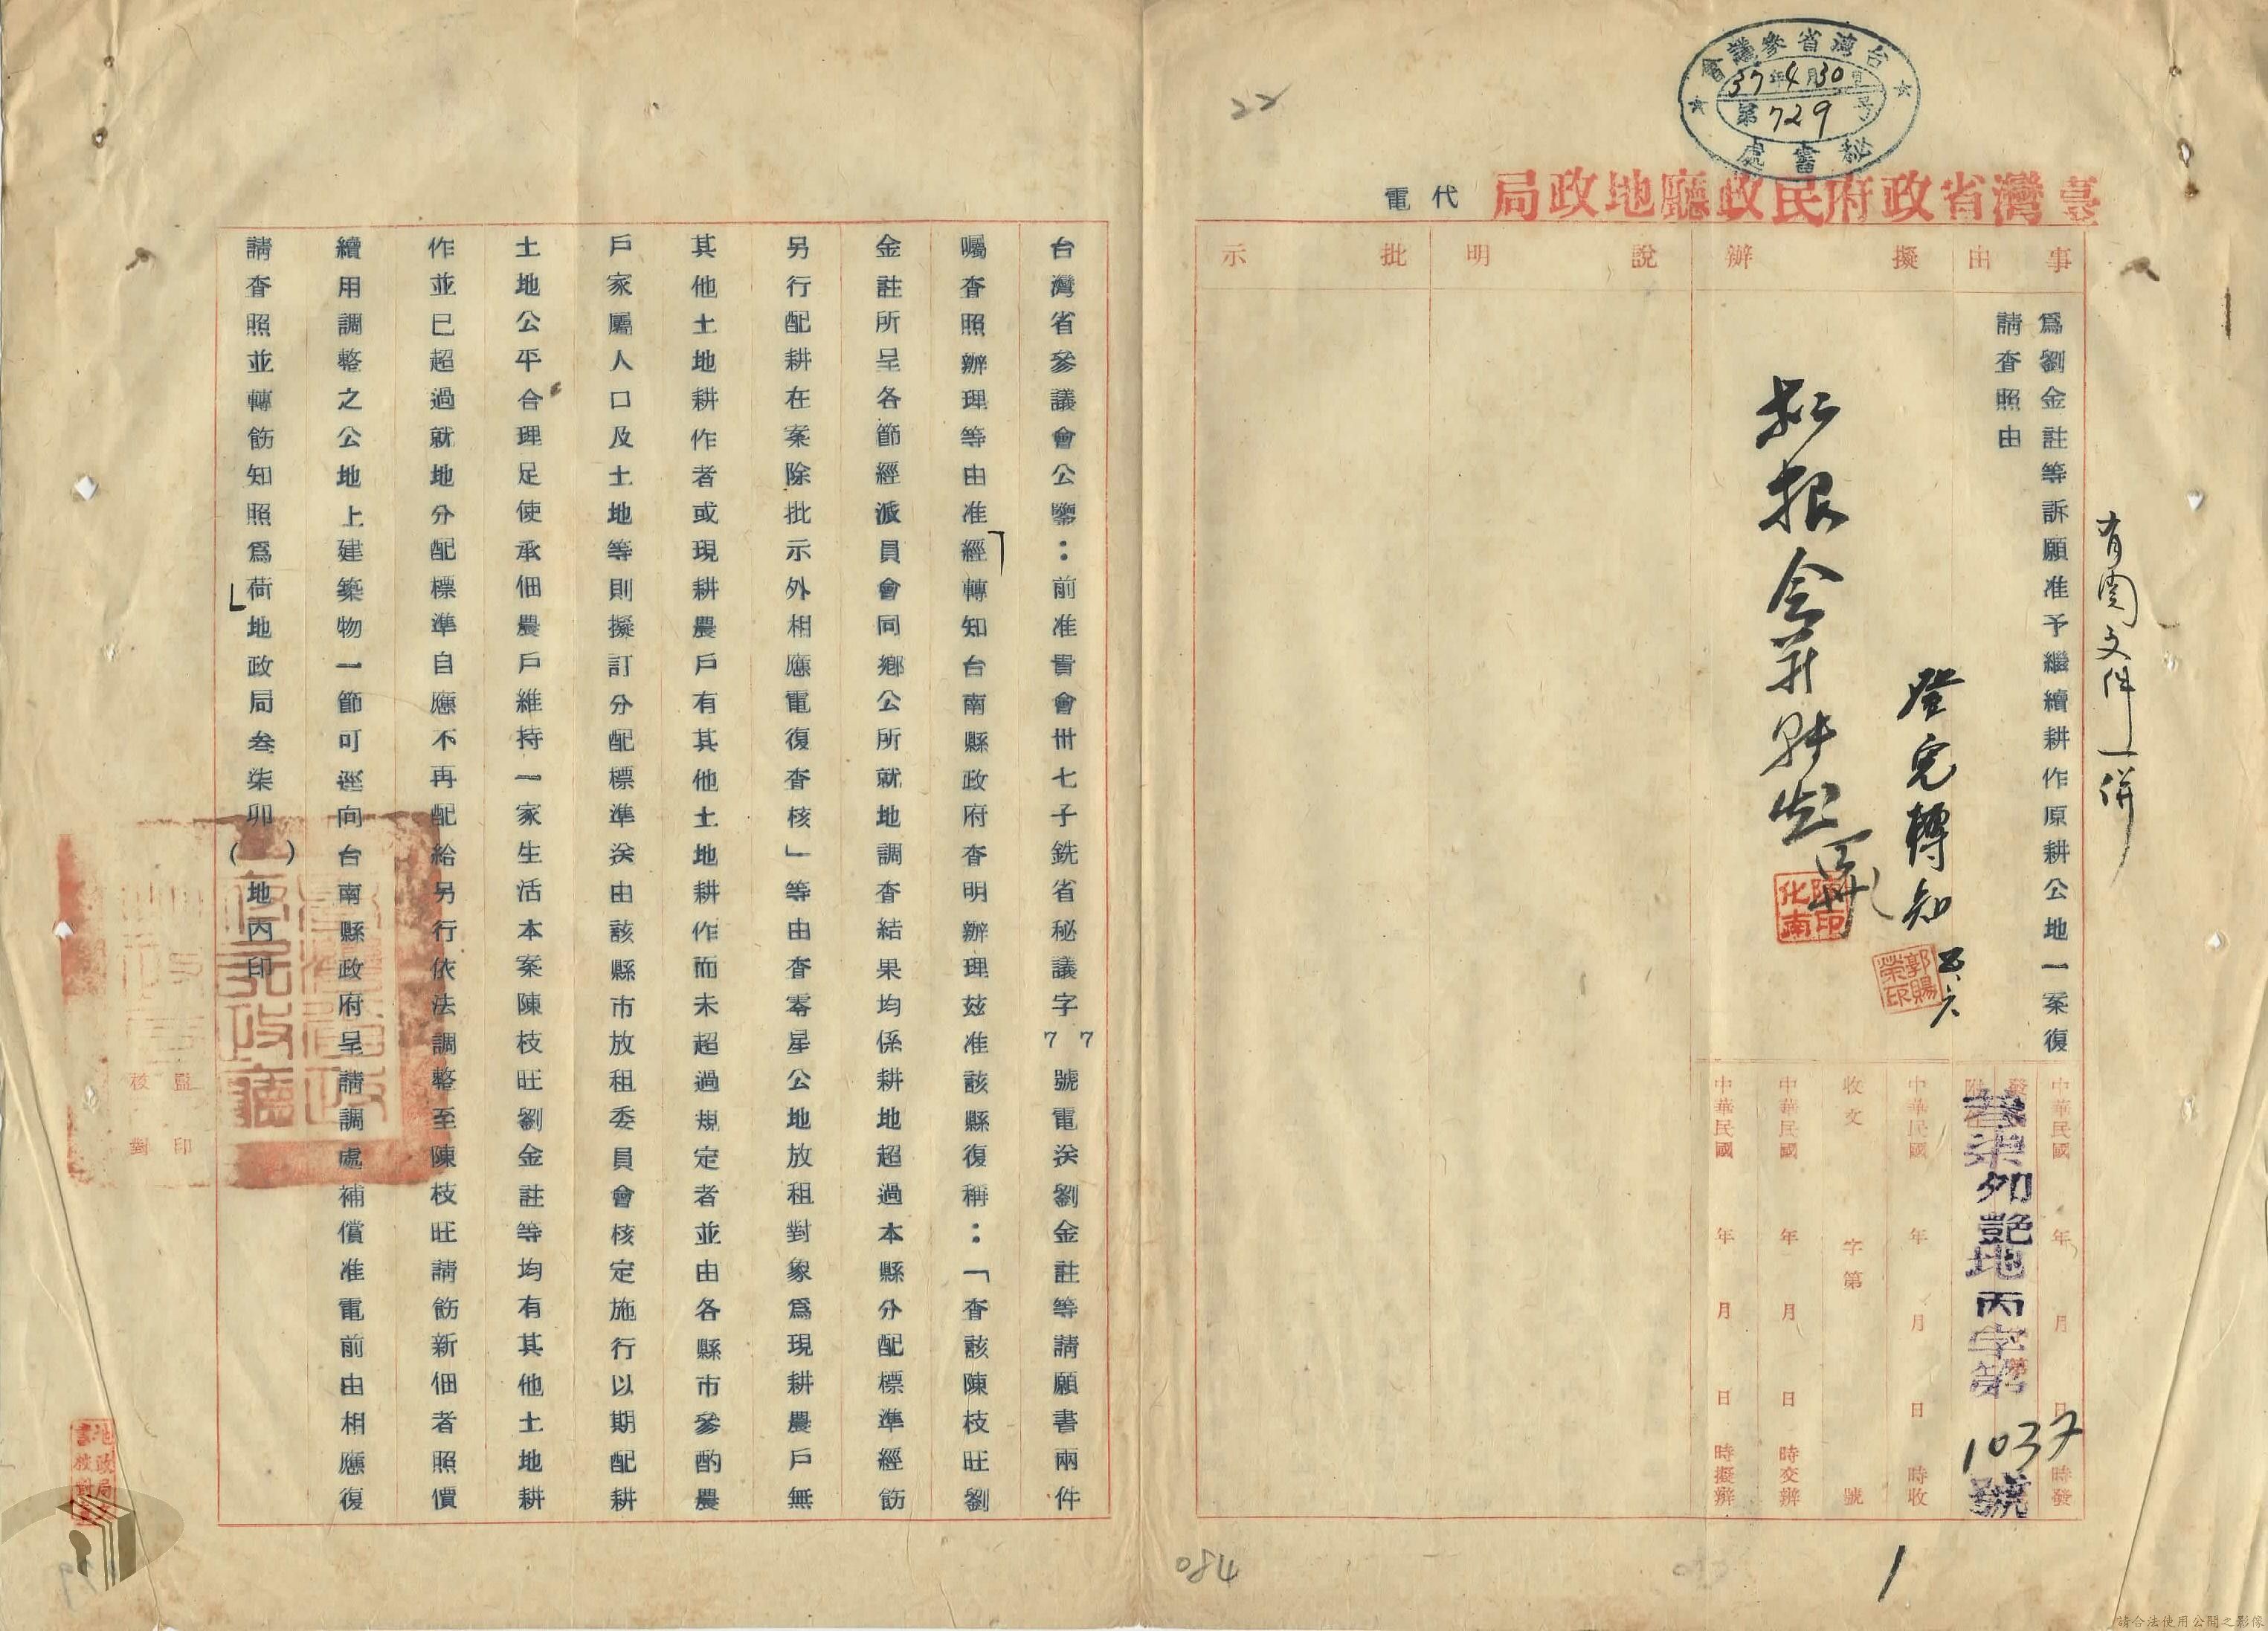 台灣省參議會
37年4月30日
第729号
秘書處
臺灣省政府民政廳地政局
代電
事由
擬辦
說明
批示
有関文件一併
為劉金註等訴願准予繼續耕作原耕公地一案復
請查照由
登完轉知 五、六
郭賜榮印
陳化南印
中華民國 年 月 日 時發
叁柒卯艷地丙字第1037號
中華民國 年 月 日 時收
收文 字第 號
中華民國 年 月 日 時交辦
中華民國 年 月 日 時擬辦
22
084
1
台灣省參議會公鑒：前准貴會卅七子銑省秘議字77號電送劉金註等請願書兩件
囑查照辦理等由准「經轉知台南縣政府查明辦理茲准該縣復稱：「查該陳枝旺劉
金註所呈各節經派員會同鄉公所就地調查結果均係耕地超過本縣分配標準經飭
另行配耕在案除批示外相應電復查核」等由查零星公地放租對象為現耕農戶無
其他土地耕作者或現耕農戶有其他土地耕作而未超過規定者並由各縣市參酌農
戶家屬人口及土地等則擬訂分配標準送由該縣市放租委員會核定施行以期配耕
土地公平合理足使承佃農戶維持一家生活本案陳枝旺劉金註等均有其他土地耕
作並已超過就地分配標準自應不再配給另行依法調整至陳枝旺請飭新佃者照價
續用調整之公地上建築物一節可逕向台南縣政府呈請調處補償准電前由相應復
請查照並轉飭知照為荷」地政局叁柒卯( )地丙印
臺灣省政府民政廳
監印
校對
請合法使用公開之影像